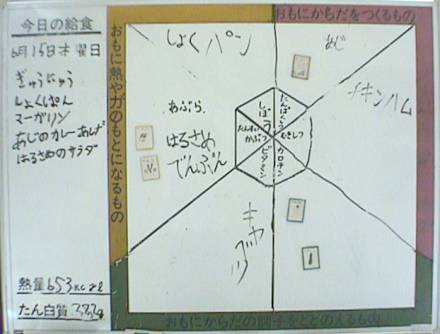 今日の給食
6月15日木曜日
ぎゅうにゅう
しょくぱん
マーガリン
あじのカレーあげ
はるさめのサラダ
熱量653Kcal
たん白質
おもに熱や力のもとになるもの
おもにからだをつくるもの
おもにからだの調子をととのえるもの
しょくパン
あじ
チキンハム
あぶら
はるさめ
でんぷん
キャベツ
しぼう
たんぱくしつ
たんすいかぶつ
むきしつ
ビタミン
カロチン